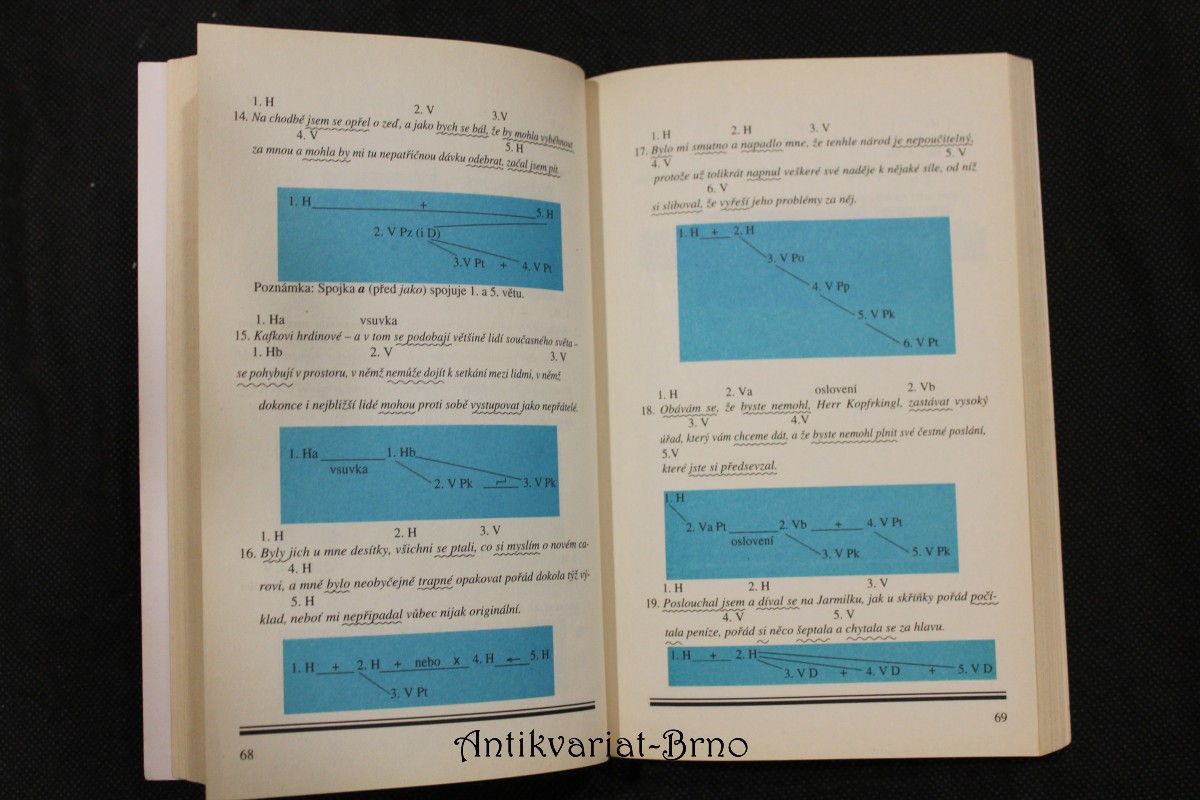 1. H 2. V 3.V
14. Na chodbě jsem se opřel o zeď, a jako bych se bál, že by mohla vyběhnout
4. V 5. H
za mnou a mohla by mi tu nepatřičnou dávku odebrat, začal jsem pít.
1. H + 5. H
2. V Pz (i D)
3.V Pt + 4. V Pt
Poznámka: Spojka a (před jako) spojuje 1. a 5. větu.
1. Ha vsuvka
15. Kafkovi hrdinové – a v tom se podobají většině lidí současného světa –
1. Hb 2. V 3. V
se pohybují v prostoru, v němž nemůže dojít k setkání mezi lidmi, v němž
dokonce i nejbližší lidé mohou proti sobě vystupovat jako nepřátelé.
1. Ha 1. Hb
vsuvka
2. V Pk 3. V Pk
1. H 2. H 3. V
16. Byly jich u mne desítky, všichni se ptali, co si myslím o novém ca-
4. H
rovi, a mně bylo neobyčejně trapné opakovat pořád dokola týž vý-
5. H
klad, neboť mi nepřipadal vůbec nijak originální.
1. H + 2. H + nebo x 4. H ← 5. H
3. V Pt
68
1. H 2. H 3. V
17. Bylo mi smutno a napadlo mne, že tenhle národ je nepoučitelný,
4. V 5. V
protože už tolikrát napnul veškeré své naděje k nějaké síle, od níž
6. V
si sliboval, že vyřeší jeho problémy za něj.
1. H + 2. H
3. V Po
4. V Pp
5. V Pk
6. V Pt
1. H 2. Va oslovení 2. Vb
18. Obávám se, že byste nemohl, Herr Kopfrkingl, zastávat vysoký
3. V 4.V
úřad, který vám chceme dát, a že byste nemohl plnit své čestné poslání,
5.V
které jste si předsevzal.
1. H
2. Va Pt 2. Vb + 4. V Pt
oslovení
3. V Pk 5. V Pk
1. H 2. H 3. V
19. Poslouchal jsem a díval se na Jarmilku, jak u skříňky pořád počí-
4. V 5. V
tala peníze, pořád si něco šeptala a chytala se za hlavu.
1. H + 2. H
3. V D + 4. V D + 5. V D
69
Antikvariat-Brno